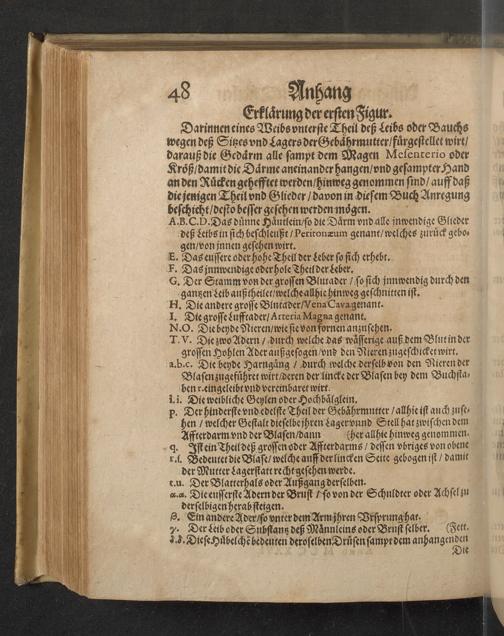 48 Anhang
Erklärung der ersten Figur.
Darinnen eines Weibs vnterste Theil deß Leibs oder Bauchs
wegen deß Sitzes vnd Lagers der Gebährmutter/fürgestellet wirt/
darauß die Gedärm alle sampt dem Magen Mesenterio oder
Kröß/damit die Därme aneinander hangen/vnd gesampter Hand
an den Rücken gehefftet werden/hinweg genommen sind/auff daß
die jenigen Theil vnd Glieder/davon in diesem Buch Anregung
beschicht/desto besser gesehen werden mögen.
A.B.C.D. Das dünne Häutlein/so die Därm vnd alle inwendige Glieder
deß Leibs in sich beschleußt/Peritonæum genant/welches zurück gebo-
gen/von innen gesehen wirt.
E. Das eussere oder hohe Theil der Leber so sich erhebt.
F. Das innwendige oder hole Theil der Leber.
G. Der Stamm von der grossen Blutader/so sich innwendig durch den
gantzen Leib außtheilet/welche allhie hinweg geschnitten ist.
H. Die andere grosse Blutader/Vena Cava genant.
I. Die grosse Lufftader/Arteria Magna genant.
N.O. Die beyde Nieren/wie sie von fornen anzusehen.
T.V. Die zwo Adern/durch welche das wässerige auß dem Blut in der
grossen Hohlen Ader außgesogen/vnd den Nieren zugeschicket wirt.
a.b.c. Die beyde Harngäng/durch welche derselb von den Nieren der
Blasen zugeführet wirt/deren der lincke der Blasen bey dem Buchsta-
ben r. eingeleibt vnd vereinbaret wirt.
i.i. Die weibliche Geylen oder Hochbälglein.
p. Der hinderste vnd edelste Theil der Gebährmutter/allhie ist auch zuse-
hen/welcher Gestalt dieselbe ihren Lager vnnd Stell hat zwischen dem
Affterdarm vnd der Blasen/dann (her allhie hinweg genommen.
q. Ist ein Theil deß grossen oder Affterdarms/dessen vbriges von obene
r.s. Bedeutet die Blase/welche auff der lincken Seite gebogen ist/damit
der Mutter Lagerstatt recht gesehen werde.
t.u. Der Blatterhals oder Außgang derselben.
α.α. Die eusserste Adern der Brust/so von der Schulder oder Achsel zu
derselbigen herabsteigen.
β. Ein andere Ader/so vnter dem Arm ihren Vrsprung hat.
γ. Der Leib oder Substantz deß Männleins oder Brust selber. (Fett.
δ.δ. Diese Hübelche bedeuten deroselben Drüsen sampt dem anhangenden
Die